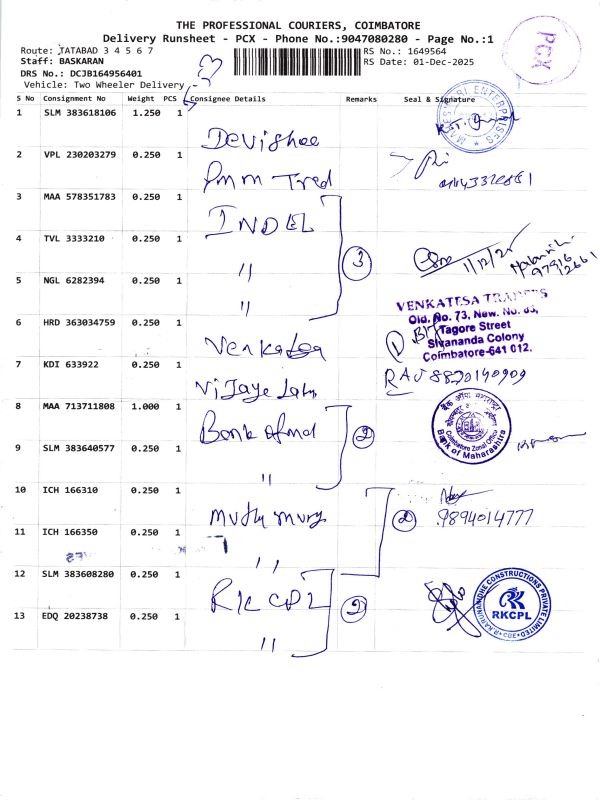 THE PROFESSIONAL COURIERS, COIMBATORE
Delivery Runsheet - PCX - Phone No.:9047080280 - Page No.:1
Route: TATABAD 3 4 5 6 7
RS No.: 1649564
Staff: BASKARAN
RS Date: 01-Dec-2025
DRS No.: DCJB164956401
Vehicle: Two Wheeler Delivery
PCX
S No Consignment No Weight PCS Consignee Details Remarks Seal & Signature
1 SLM 383618106 1.250 1 Devishee
2 VPL 230203279 0.250 1 Pmm Tred
3 MAA 578351783 0.250 1 INDEL
4 TVL 3333210 0.250 1 "
3
1/12/25
5 NGL 6282394 0.250 1 "
VENKATESA TRADERS
Old. No. 73, New. No. 63,
Tagore Street
Sivananda Colony
Coimbatore-641 012.
6 HRD 363034759 0.250 1
7 KDI 633922 0.250 1
RAJ 8870140909
8 MAA 713711808 1.000 1 Bank of
2
Coimbatore Zonal Office
Bank of Maharashtra
9 SLM 383640577 0.250 1 "
10 ICH 166310 0.250 1
2
9894014777
11 ICH 166350 0.250 1 "
12 SLM 383608280 0.250 1 RKCPL
2
RKCPL
13 EDQ 20238738 0.250 1 "